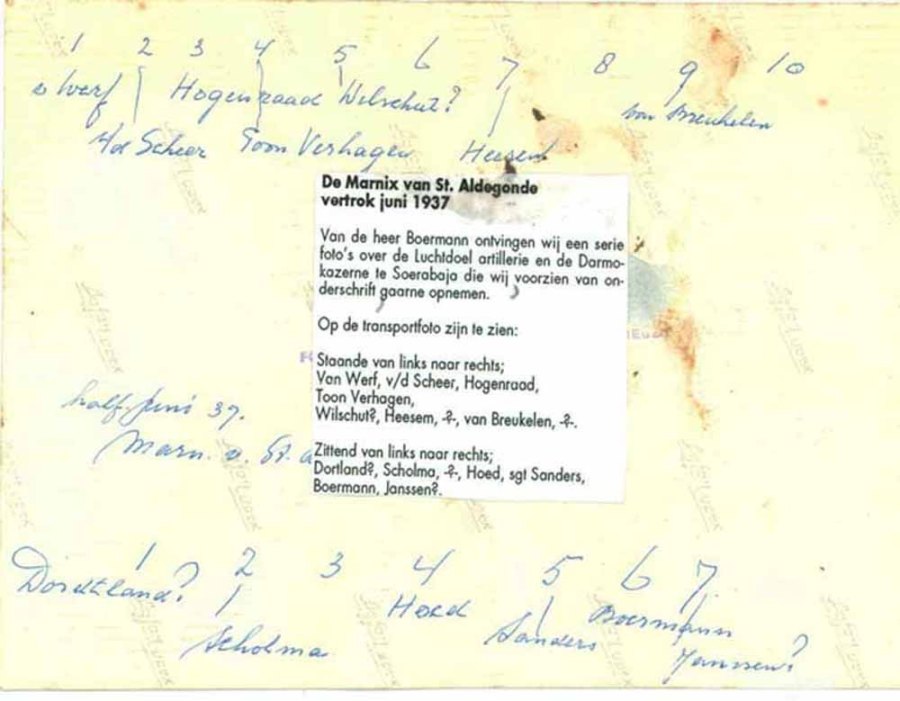 1 2 3 4 5 6 7 8 9 10
v Werf Hogenraad Wilschut? van Breukelen
v/d Scheer Toon Verhagen Heesem
De Marnix van St. Aldegonde
vertrok juni 1937
Van de heer Boermann ontvingen wij een serie
foto's over de Luchtdoel artillerie en de Darmo-
kazerne te Soerabaja die wij voorzien van on-
derschrift gaarne opnemen.
Op de transportfoto zijn te zien:
Staande van links naar rechts;
Van Werf, v/d Scheer, Hogenraad,
Toon Verhagen,
Wilschut?, Heesem, -?-, van Breukelen, -?-.
half juni 37.
Marn. v. St. a
Zittend van links naar rechts;
Dortland?, Scholma, -?-, Hoed, sgt Sanders,
Boermann, Janssen?.
1 2 3 4 5 6 7
Dordtland? Hoed Boermann
Scholma Sanders Janssen?